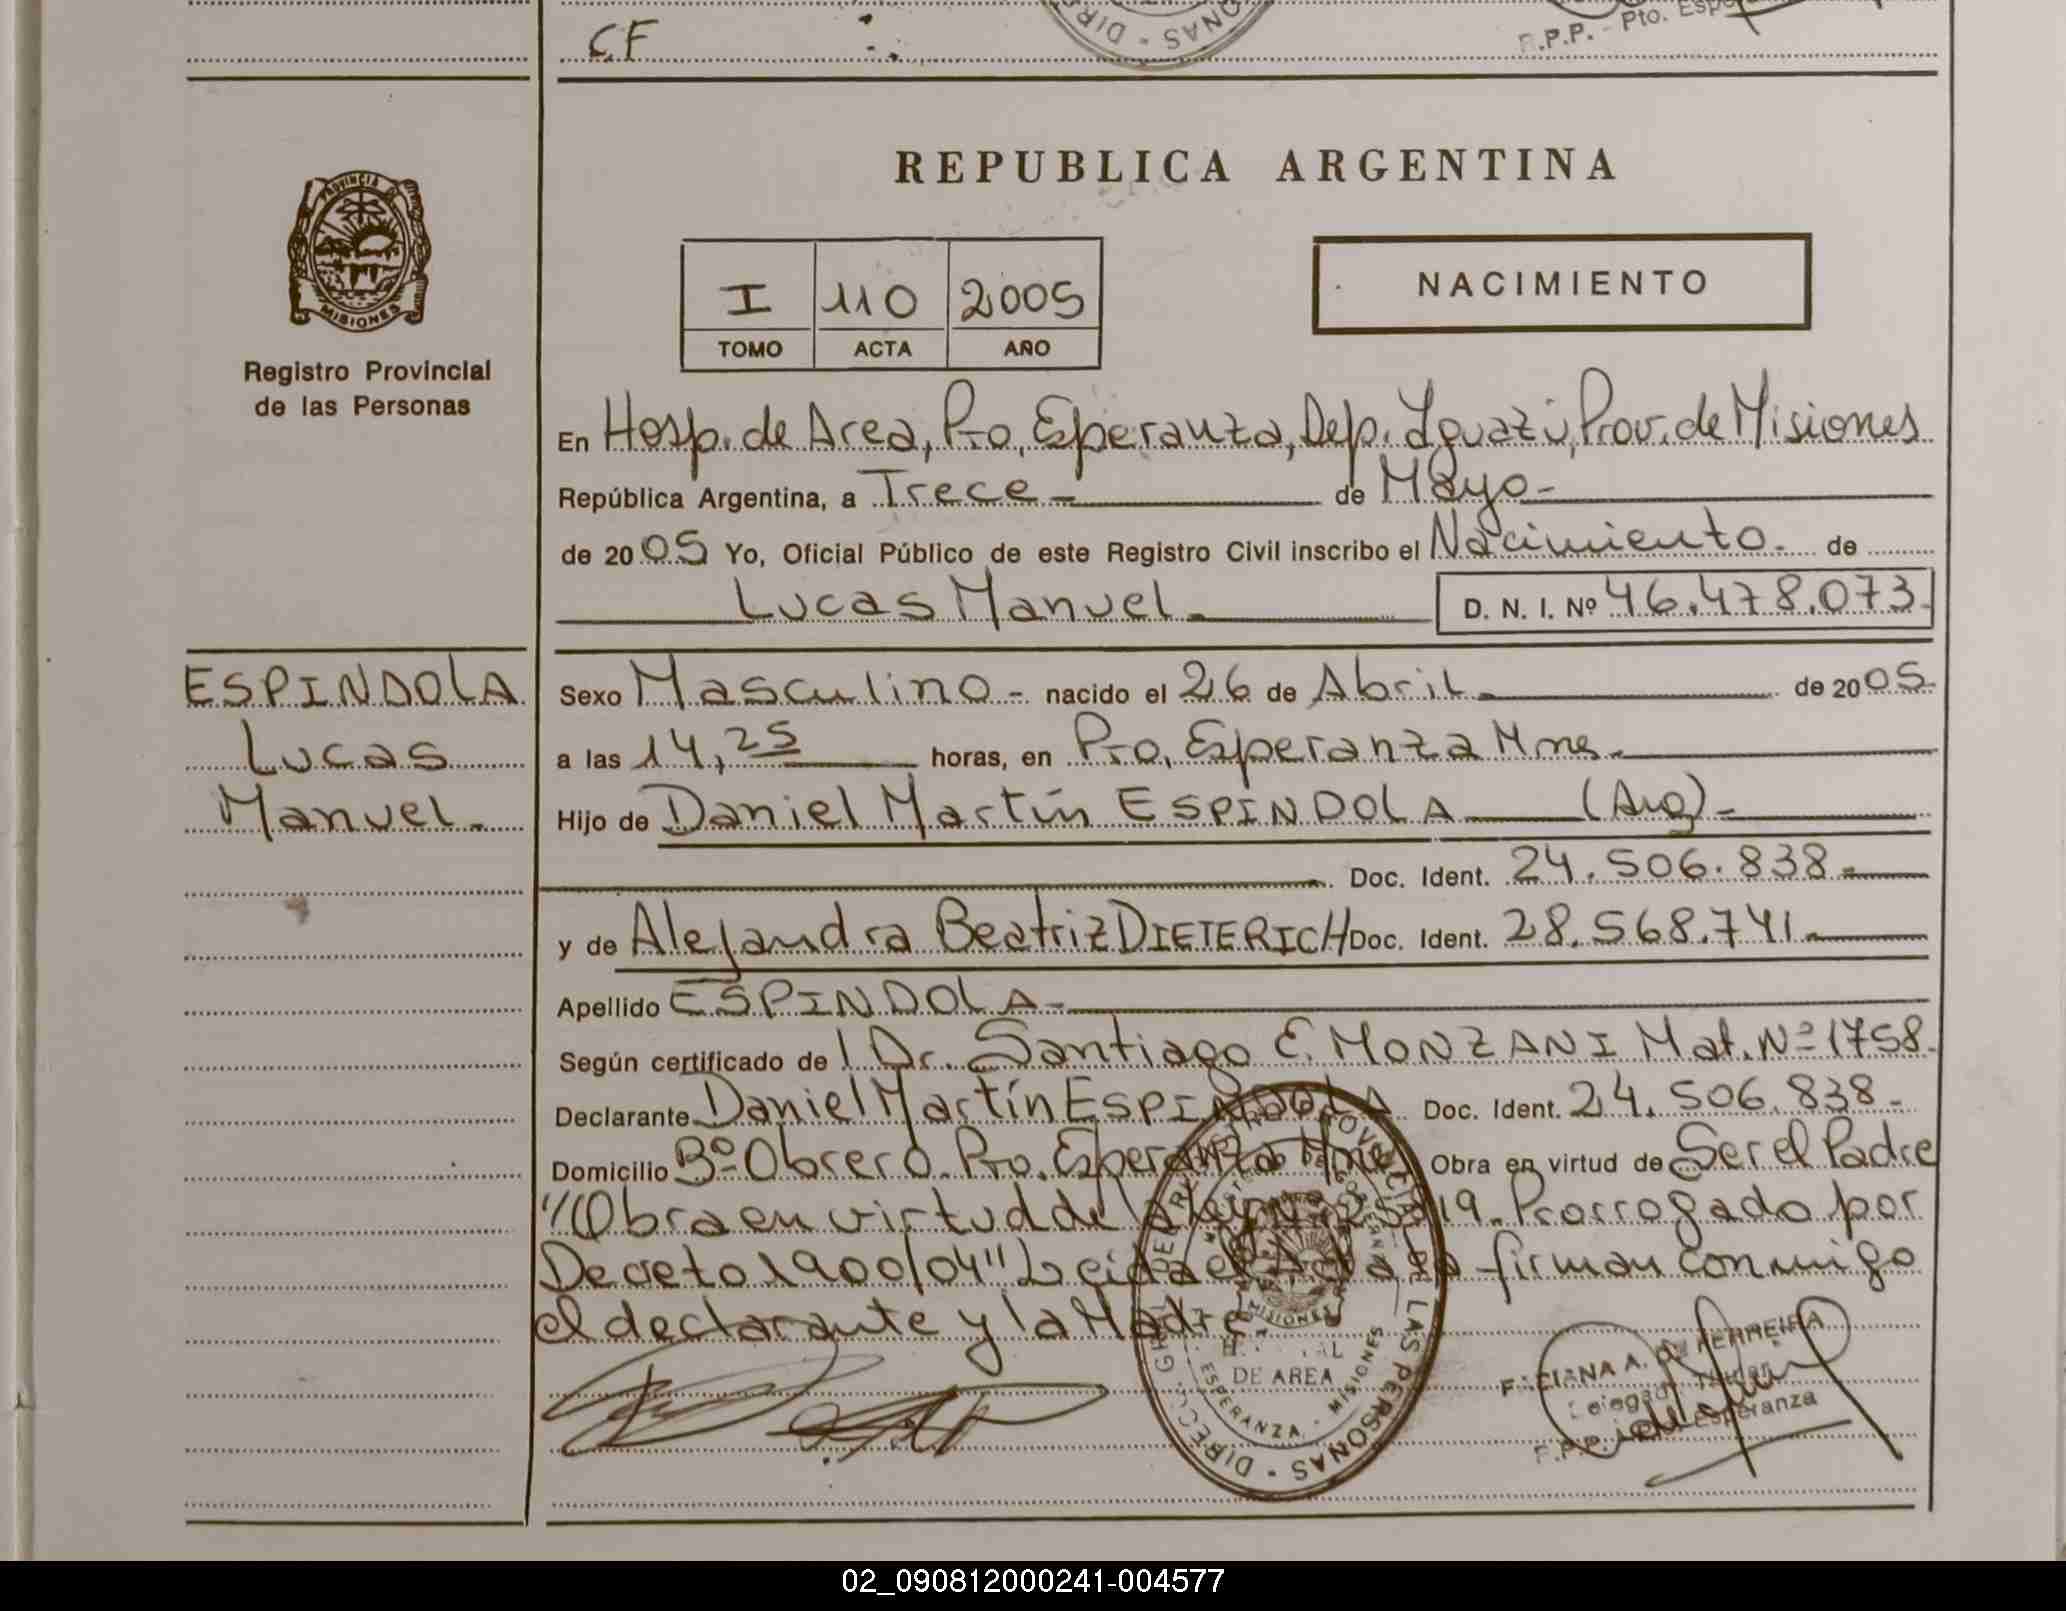 CF
R.P.P. - Pto. Esp
DIR
ONAS
PROVINCIA DE
MISIONES
Registro Provincial
de las Personas
REPUBLICA ARGENTINA
I 110 2005
TOMO ACTA AÑO
NACIMIENTO
En Hosp. de Area, Pto, Esperanza, Dep. Iguazú, Prov. de Misiones
República Argentina, a Trece de Mayo
de 2005 Yo, Oficial Público de este Registro Civil inscribo el Nacimiento. de
Lucas Manuel D. N. I. Nº 46.478.073
ESPINDOLA
Lucas
Manuel
Sexo Masculino nacido el 26 de Abril de 2005
a las 14,25 horas, en Pto, Esperanza Mnes.
Hijo de Daniel Martín ESPINDOLA (Arg)
Doc. Ident. 24.506.838
y de Alejandra Beatriz DIETERICH Doc. Ident. 28.568.741
Apellido ESPINDOLA
Según certificado de l Dr. Santiago E. MONZANI Mat. Nº 1758
Declarante Daniel Martín ESPINDOLA Doc. Ident. 24.506.838
Domicilio Bº Obrero. Pto. Esperanza Mnes Obra en virtud de Ser el Padre
"Obra en virtud de la Ley 19. Prorrogado por
Decreto 1900/04" Leida el Acta la firman conmigo
el declarante y la Madre.
DIRECC GRAL DE LAS PERSONAS
MISIONES
DE AREA
ESPERANZA - MISIONES
A. DE FERREIRA
Titular
Esperanza
02_090812000241-004577